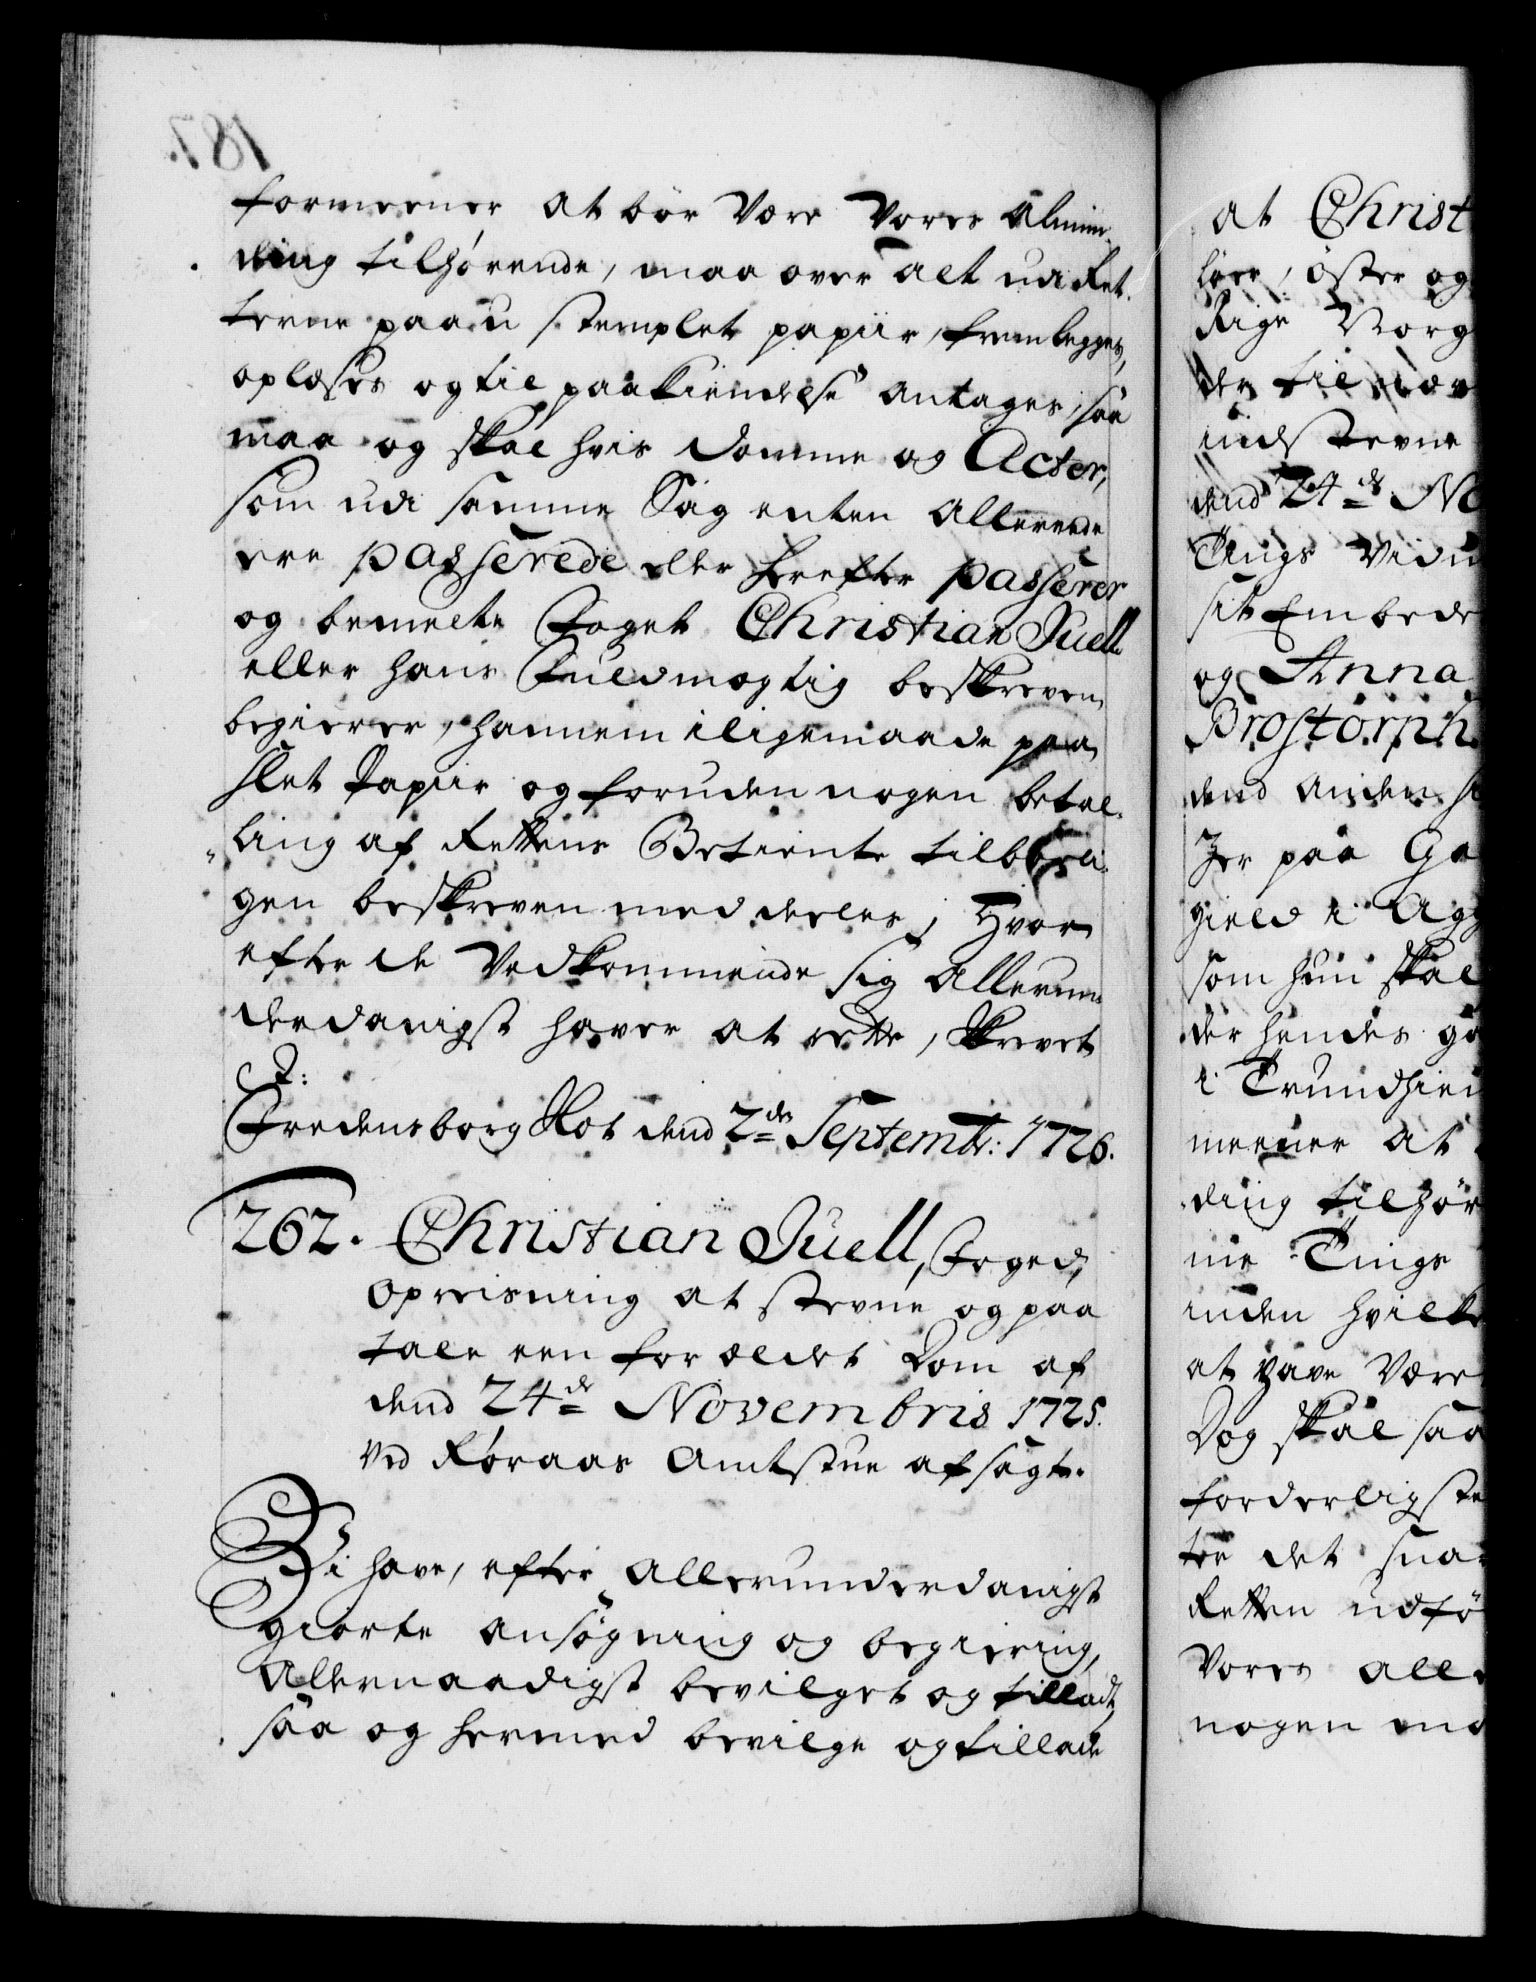 187.
formeener at bör være Vores Almin-
ding tilhørende, maa over alt udi Ret-
terne paa u-stemplet papiir, fremlegges,
oplæses og til paakiendelse antages, saa
maa og skal hvis Domme og Acter,
som udi samme Sag enten allereede
ere passerede eller herefter passerer
og bemelte Foget Christian Juell
eller hans Fuldmægtig beskreven
begierer, hannem iligemaade paa
slet Papiir og foruden nogen betal-
ling af Rettens Betiente tilbørli-
gen beskreven meddeeles, Hvor
efter de Vedkommende sig allerun-
derdanigst haver at rette, Skrevet
P:
Fredensborg Slot dend 2den Septembr: 1726.
262. Christian Juell, Foged,
Opreisning at stevne og paa
tale een forældet Dom af
dend 24de Novembris 1725.
ved Røraas Amtstue afsagt.
Vi have, efter allerunderdanigst
giorte ansøgning og begiering,
allernaadigst bevilget og tilladt,
saa og hermed bevilge og tillade
at Christ
löer, öster og
Rige Norg
der til nær
indstevne
dend 24de No
Tings Vidn
sit Embede
og Anna
Brostorph
dend anden si
Jer paa Ga
gield i Agg
som hun skal
der hendes ga
i Trundhiem
meener at
ding tilhör
nie Tings
inden hvilke
at have være
Dog skal saa
forderligste
ter det snar
Retten udfø
Vores alle
nogen maa